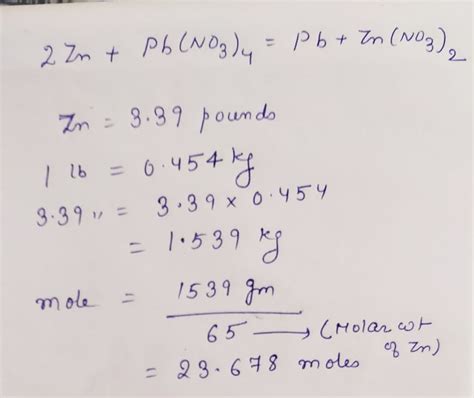 2 Zn + Pb(NO3)4 = Pb + Zn(NO3)2
Zn = 3.39 pounds
1 lb = 0.454 kg
3.39 ,, = 3.39 x 0.454
= 1.539 kg
mole = 1539 gm
65 → (Molar wt of Zn)
= 23.678 moles